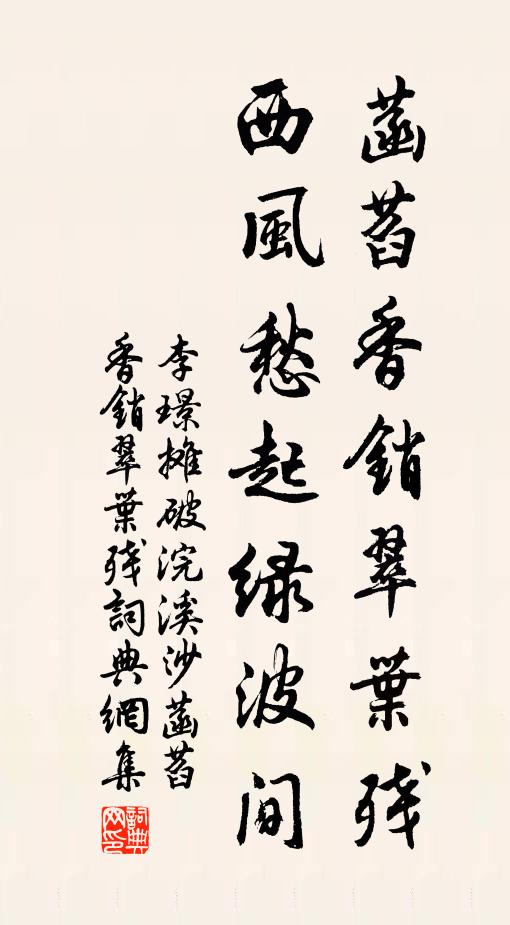 菡萏香銷翠葉殘
西風愁起緑波間
李璟攤破浣溪沙菡萏
香銷翠葉殘詞典網集
詞典
网印